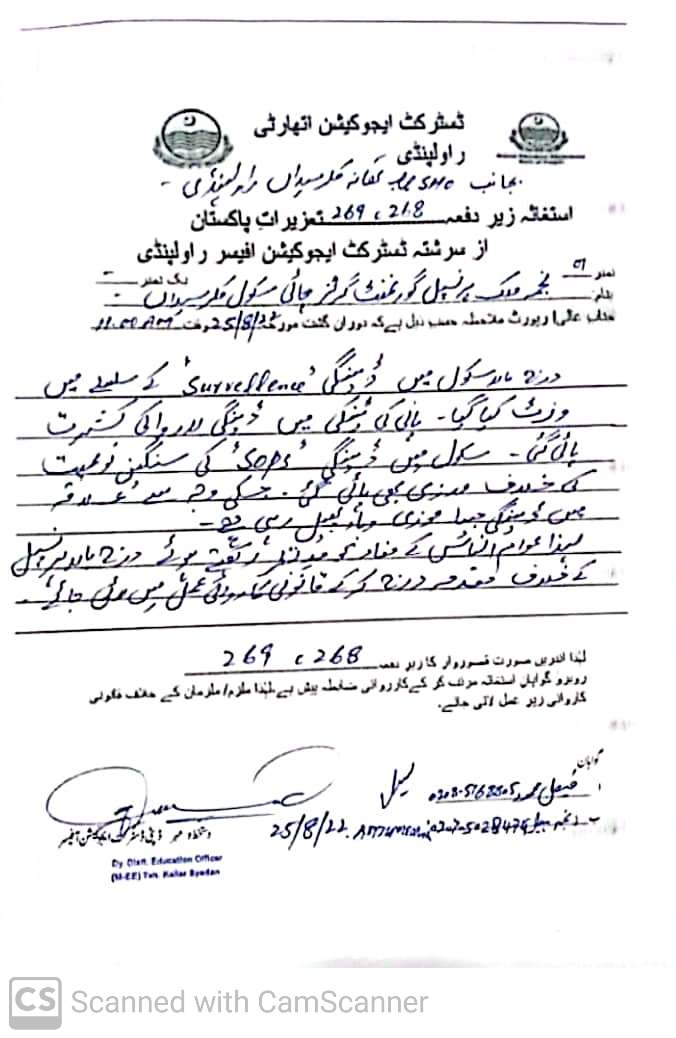 ڈسٹرکٹ ایجوکیشن اتھارٹی
راولپنڈی
بجانب SHO تھانہ کلرسیداں راولپنڈی -
استغاثہ زیر دفعہ 268، 269 تعزیرات پاکستان
از سرشتہ ڈسٹرکٹ ایجوکیشن آفیسر راولپنڈی
نمبر 01 بک نمبر
بنام: نجمہ ملک پرنسپل گورنمنٹ گرلز ہائی سکول کلرسیداں
جناب عالی! رپورٹ ملاحظہ حسب ذیل ہے کہ دوران گشت مورخہ 25/8/22 وقت 11.00 AM
درج بالا سکول میں ڈینگی 'Survellence' کے سلسلے میں
وزٹ کیا گیا - پانی کی ٹینکی میں ڈینگی لاروا کی کثرت
پائی گئی - سکول میں ڈینگی 'SOPs' کی سنگین نوعیت
کی خلاف ورزی بھی پائی گئی - جسکی وجہ سے علاقہ
میں ڈینگی جیسا موذی وباء پھیل رہی ہے -
لہذا عوام الناس کے مفاد کو مدنظر رکھتے ہوئے درج بالا پرنسپل
کے خلاف مقدمہ درج کر کے قانونی کاروائی عمل میں لائی جائے -
لہٰذا اندریں صورت قصوروار کا زیر دفعہ 268، 269
روبرو گواہان استغاثہ مرتب کر کے کارروائی ضابطہ پیش ہے۔ لہٰذا ملزم/ملزمان کے خلاف قانونی
کاروائی زیر عمل لائی جائے۔
گواہان
فیصل محمود
25/8/22
دستخط و مہر ڈپٹی ڈسٹرکٹ ایجوکیشن آفیسر
Dy. Distt. Education Officer
(M-EE) Teh. Kallar Syedan
CS Scanned with CamScanner